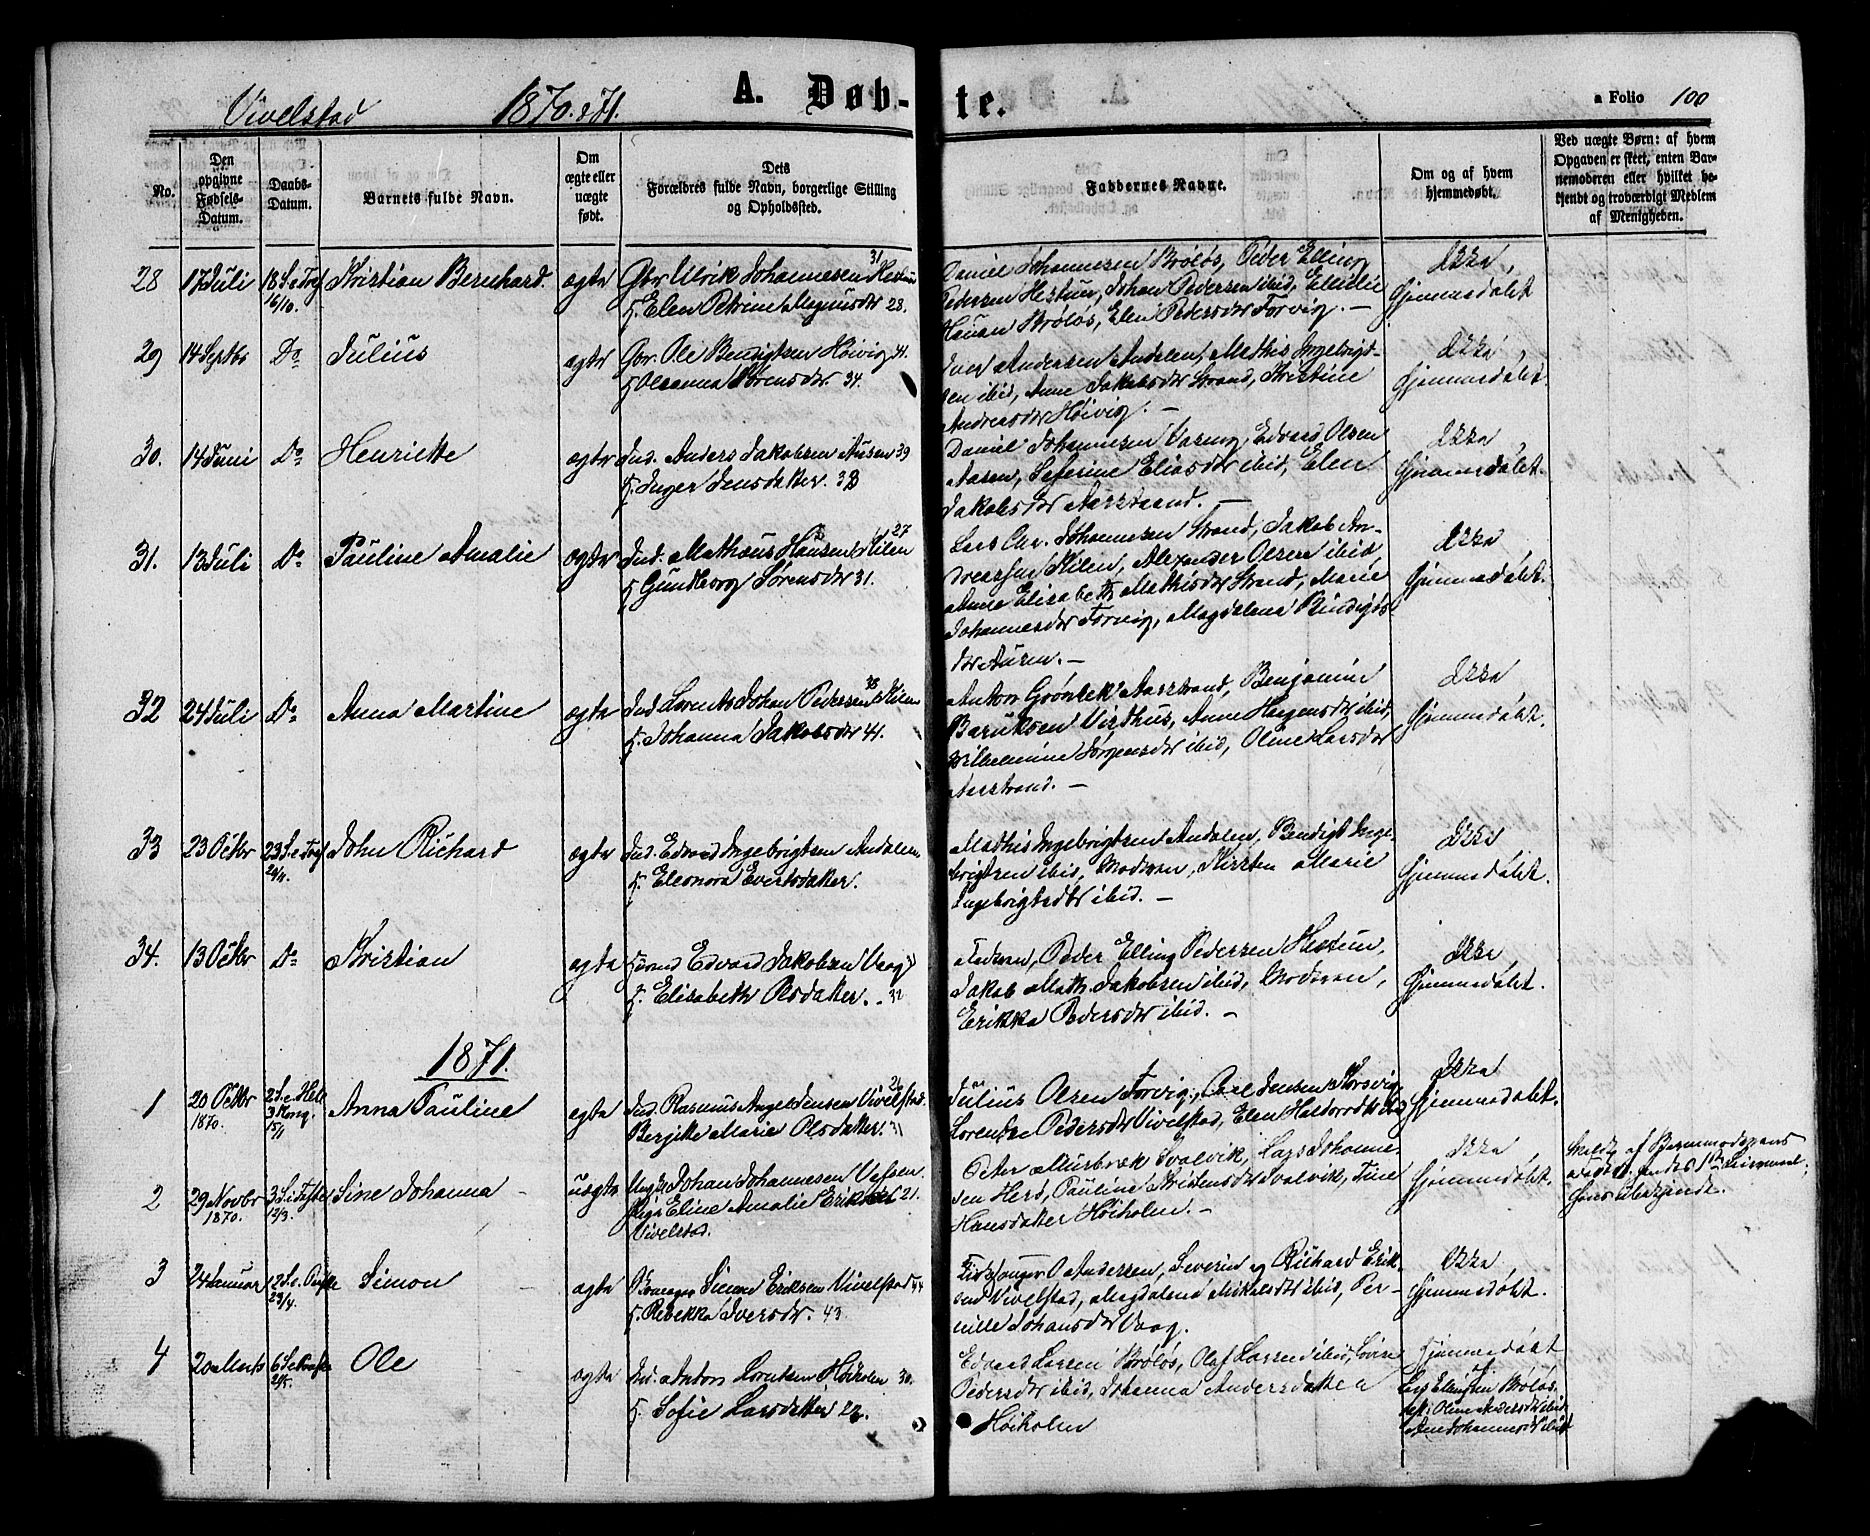 Vivelstad 1870 & 71. A. Døb-te. a Folio 100
No.
Den opgivne Fødsels-Datum.
Daabs-Datum.
Barnets fulde Navn.
Om ægte eller uægte født.
Dets Forældres fulde Navn, borgerlige Stilling og Opholdssted.
Faddernes Navne.
Om og af hvem hjemmedøbt.
Ved uægte Børn: af hvem Opgaven er skeet, enten Barnemoderen eller hvilket bekjendt og troværdigt Medlem af Menigheden.
28 17 Juli 18 S. e Tref 16/10. Kristian Bernhard. ægte Gbr Ulrik Johannesen Hestun 31
K. Elen Petrine Magnusdr 28.
Daniel Johannesen Brøløs, Peder Elling
Pedersen Hestun, Johan Pedersen ibid, Emilie
Hansen Brøløs, Elen Pedersdr Forvig. —
Ikke Hjemmedøbt
29 14 Septbr Do Julius ægte Gbr. Ole Bendigtsen Høivig 41.
K Oleanna Sørensdr 34.
Iver Andersen Andalen, Mathis Ingebrigt-
sen ibid, Anne Jakobsdr Strand, Kristine
Andreasdr Høivig. —
Ikke Hjemmedøbt.
30. 14 Juni Do Henriette ægte Ind. Anders Jakobsen Ausen 39
K. Inger Jensdatter. 38
Daniel Johannesen Vareng, Edvard Olsen
Aasen, Seferine Eliasdr ibid, Elen
Jakobsdr Aarstrand. —
Ikke Hjemmedøbt.
31. 13 Juli Do Pauline Amalie ægte Ind. Mathæus Hansen Kilen 27
K Gundborg Sørensdr 31.
Lars Chr. Johannesen Strand, Jakob An-
dreassen Kilen, Alexander Olsen ibid,
Anne Elisabeth Mathisdr Strand, Marie
Johannesdr Forvig, Magdalena Bendigts
dr Ausen. —
Ikke Hjemmedøbt.
32 24 Juli Do Anna Martine ægte Ind Lorents Johan Pedersen Kilen 38
K. Johanna Jakobsdr 44.
Anton Grønbek Aarstrand, Benjamin
Baruksen Visthus, Anne Hagensdr ibid,
Vilhelmine Jørgensdr ibid, Oline Larsdr
Aarstrand. —
Ikke Hjemmedøbt.
33 23 Octbr 23 S. e Tref 20/11. John Richard ægte Ind. Edvard Ingebrigtsen Andalen
K. Eleonora Evertsdatter.
Mathis Ingebrigtsen Andalen, Bendigt Inge-
brigtsen ibid, Moderen, Kirsten Marie
Ingebrigtsdtr ibid. —
Ikke Hjemmedøbt.
34. 13 Octbr Do Kristian ægte Edvard Jakobsen Vaag
K. Elisabeth Olsdatter. 32
Faderen, Peder Elling Pedersen Hestun,
Jakob Math. Jakobsen ibid, Moderen,
Erikka Pedersdr ibid. —
Ikke Hjemmedøbt.
1871.
1 20 Octbr 1870. 2 S. e Hell 3 Kong. 15/1 Anna Pauline ægte Ind. Rasmus Angel Jensen Vivelstad 26
Bergitte Marie Olsdatter. 31
Julius Olsen Forvig, Carl Jensen Korsvig,
Lorentze Pedersdr Vivelstad, Elen
Ikke Hjemmedøbt.
2 29 Novbr 1870. 3 S. i Faste 12/3. Sine Johanna uægte Ungk Johan Johannesen Vefsen
Pige Eline Amalie Eriksdr 21.
Vivelstad.
Peter Mursbæk Svalvik, Lars Johanne-
sen Herø, Pauline Kristensdr Svalvik, Tine
Hansdatter Høiholm. —
Ikke Hjemmedøbt.
3 24 Januar 2 S. e. Paaske 23/4. Simon ægte Simon Eriksen Vivelstad 44
K. Rebekka Iversdr. 43
Andersen, Severin og Richard Erik-
sen Vivelstad, Magdalena Mikalsdr ibid, Per-
nille Johansdr Vaag.
Ikke Hjemmedøbt.
4 20 Marts 6 S. e Paaske 21/5. Ole ægte Ind. Anton Lorntsen Høiholm 30.
K. Sofie Larsdatter 22.
Edvard Larsen Brøløs, Olaf Larsen ibid, Lovise
Pedersdr ibid, Johanna Andersdatter
Høiholm
Hjemmedøbt